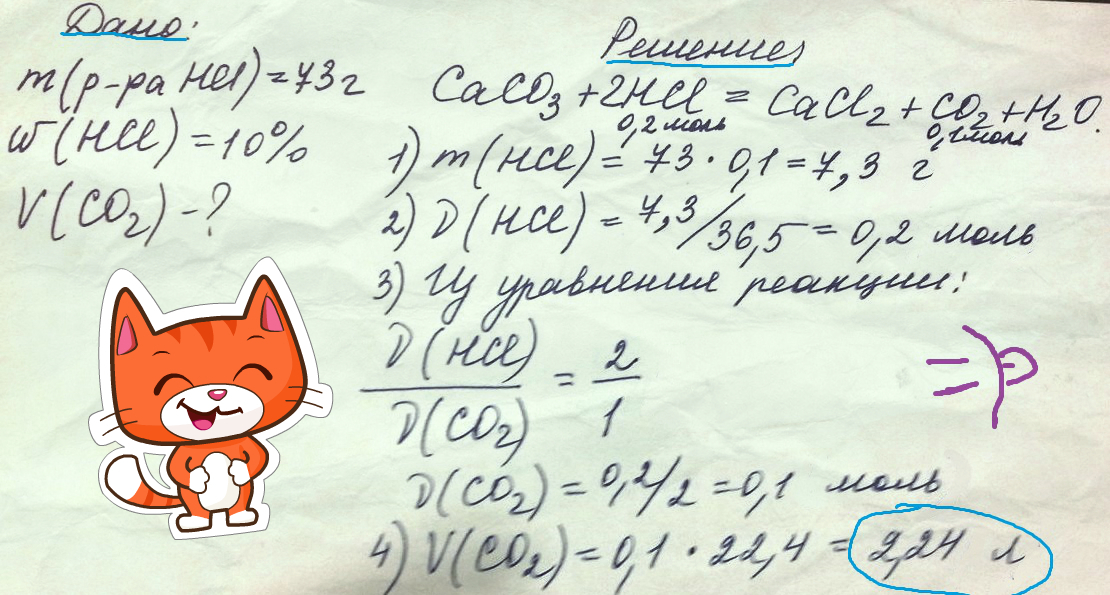 Дано:
m(р-ра HCl)=73г
ω(HCl)=10%
V(CO₂)-?
Решение
CaCO₃+2HCl=CaCl₂+CO₂+H₂O.
0,2 моль 0,1 моль
1) m(HCl)=73·0,1=7,3 г
2) D(HCl)=7,3/36,5=0,2 моль
3) Из уравнения реакции:
D(HCl)/D(CO₂)=2/1
D(CO₂)=0,2/2=0,1 моль
4) V(CO₂)=0,1·22,4=2,24 л